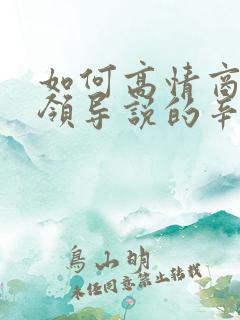 如何高情商
领导说的辛
鸟山明
未经同意禁止转载